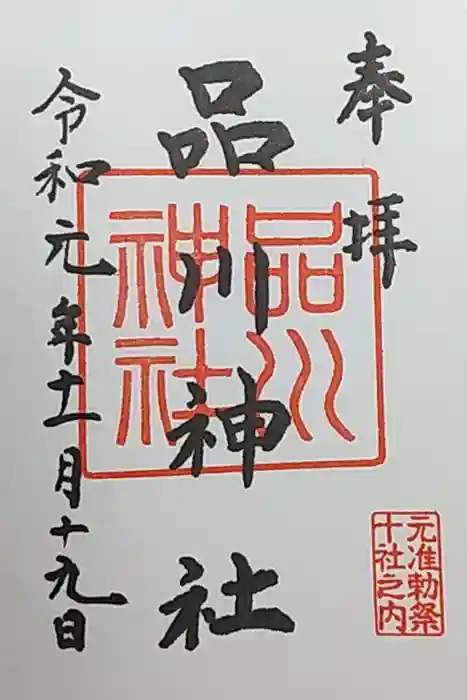 奉拝
品川神社
品川
神社
令和元年十一月十九日
元准勅祭
十社之内